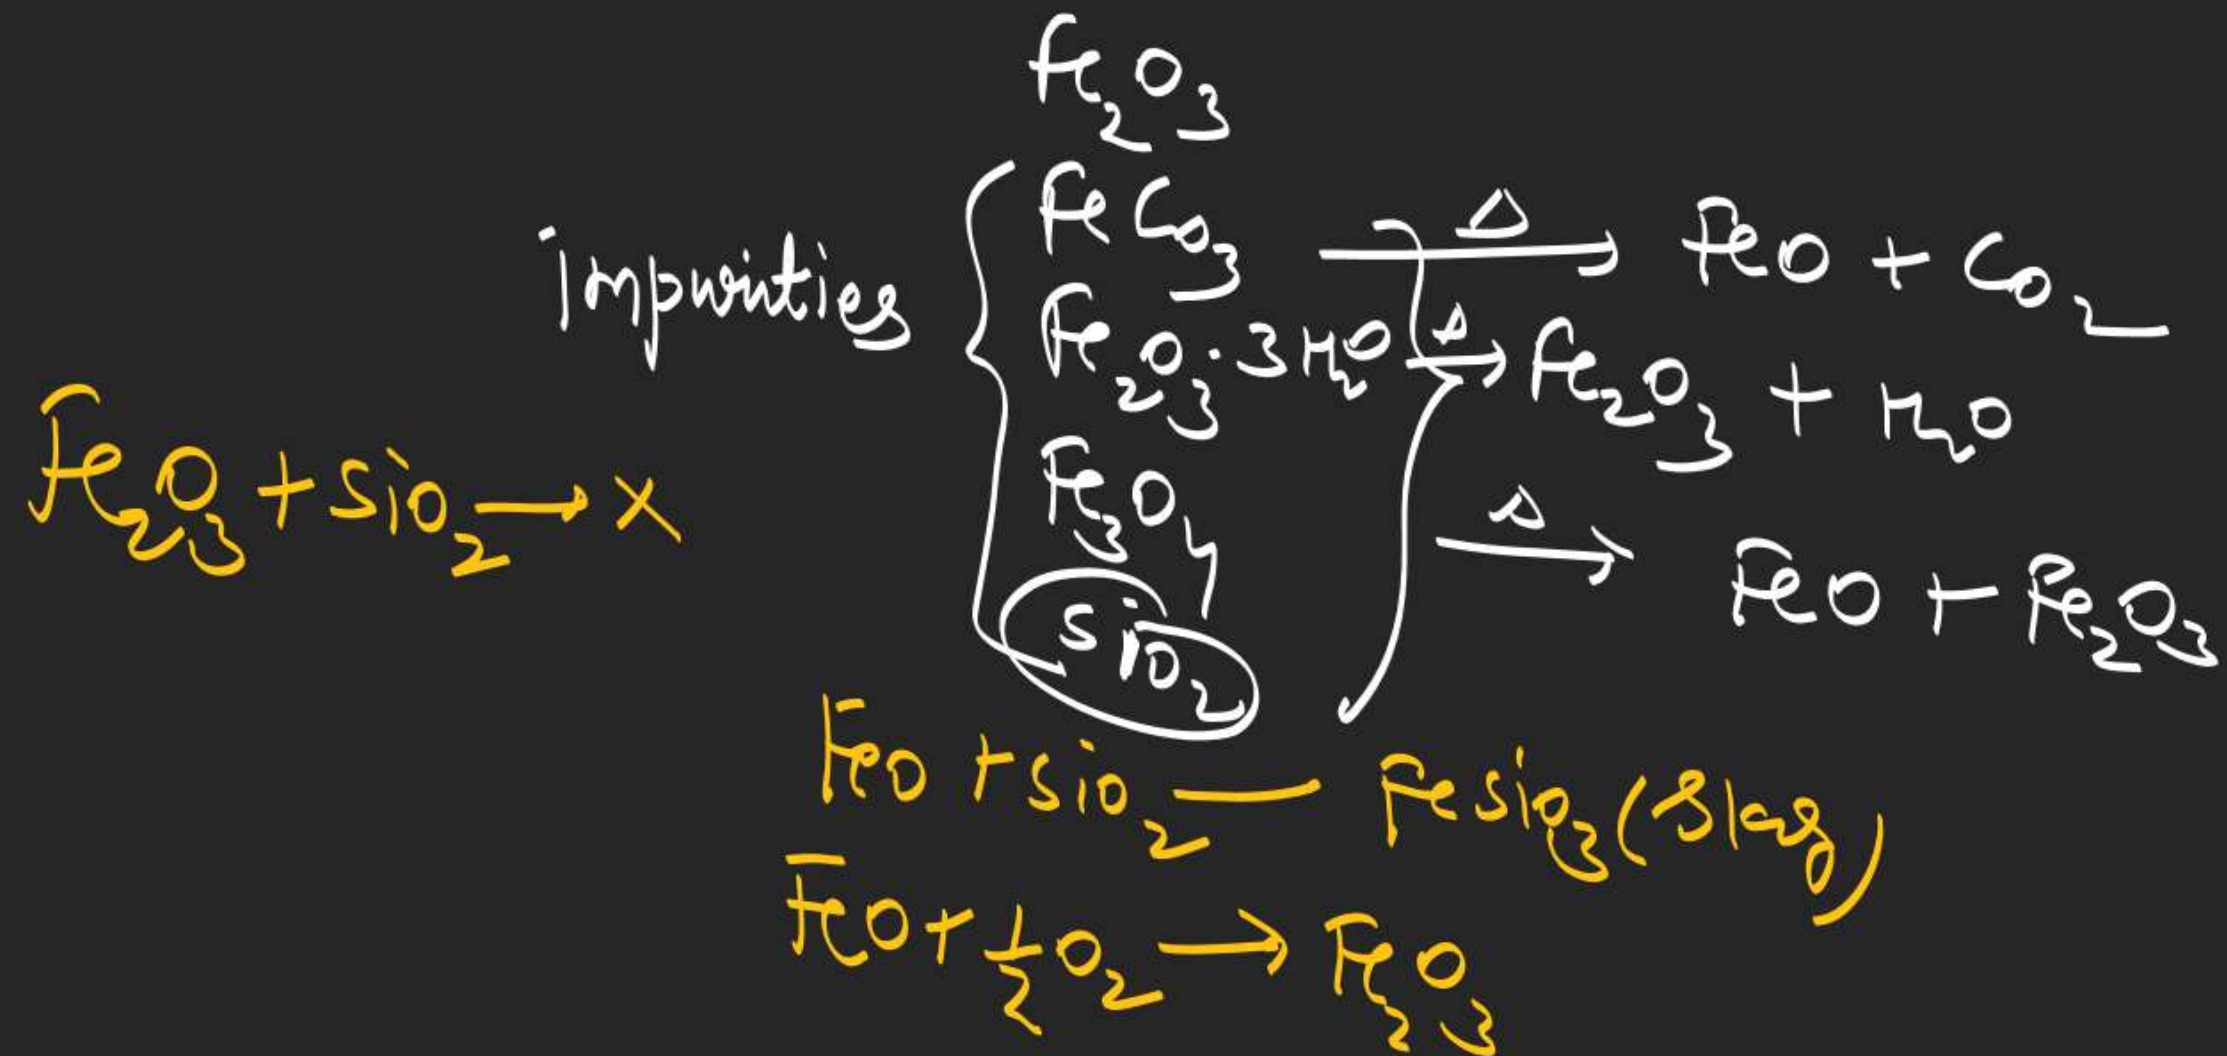 Fe₂O₃
impurities { FeCO₃ —Δ→ FeO + CO₂
Fe₂O₃·3H₂O —Δ→ Fe₂O₃ + H₂O
Fe₂O₃ + SiO₂ → ×
Fe₃O₄ —Δ→ FeO + Fe₂O₃
SiO₂
FeO + SiO₂ — FeSiO₃ (Slag)
FeO + ½O₂ → Fe₂O₃